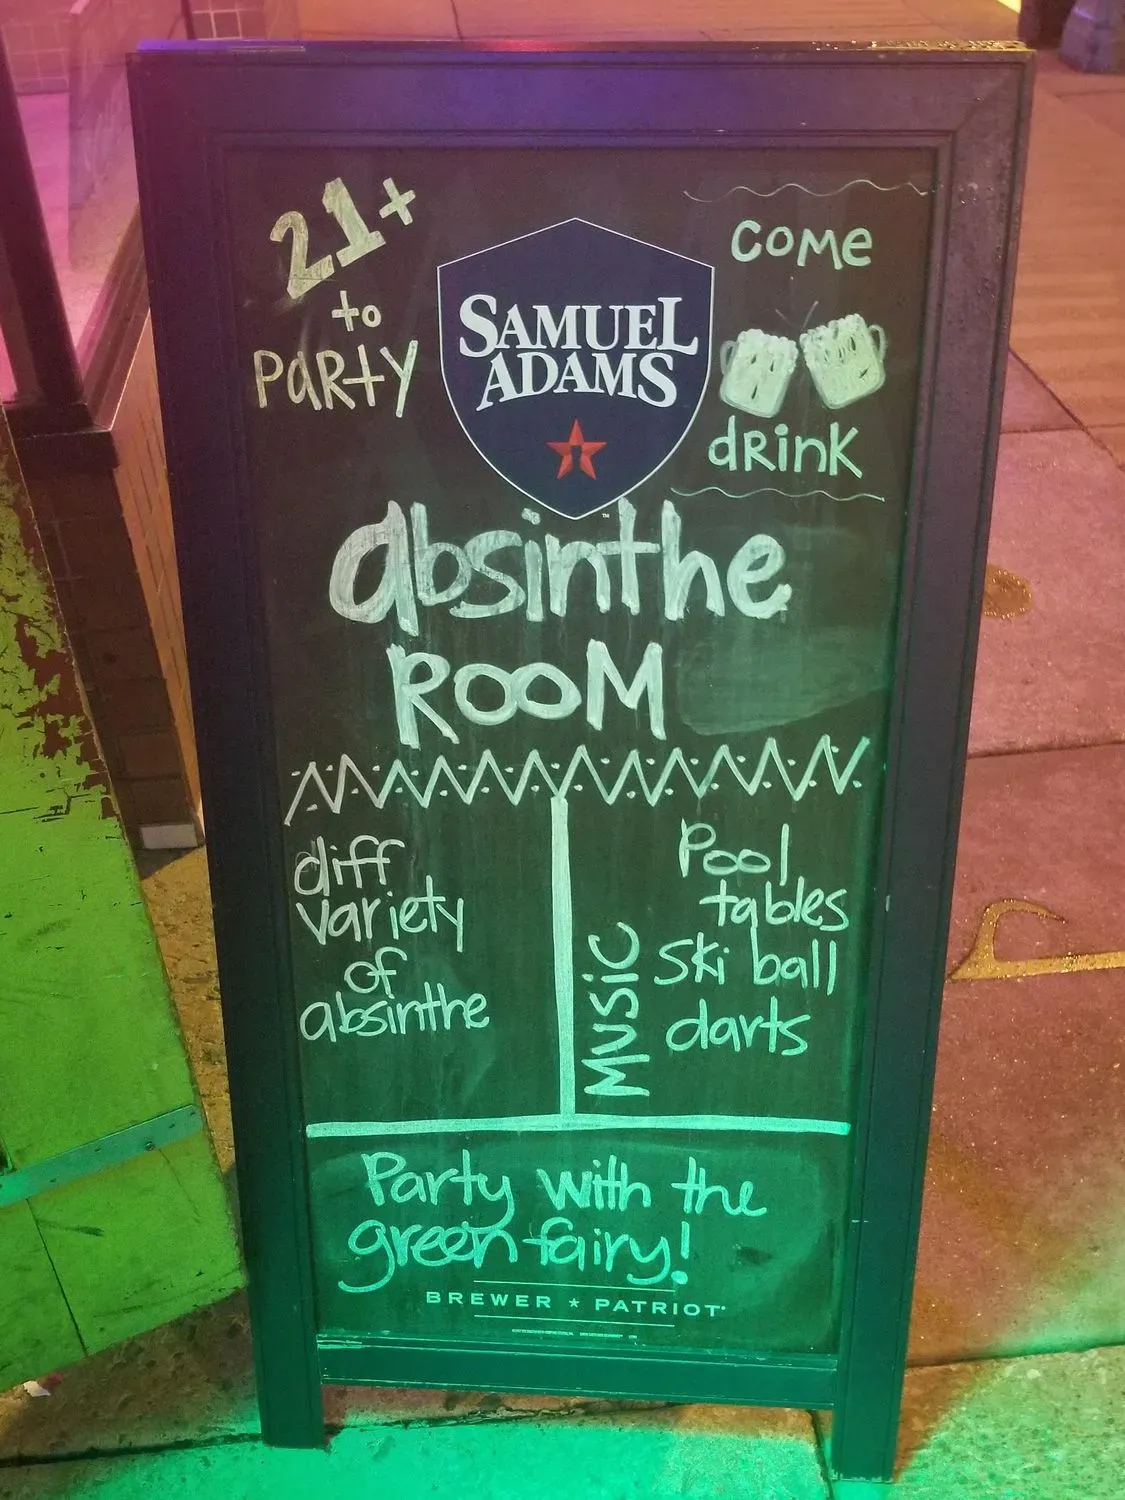 21+
to
PARTY
SAMUEL
ADAMS
COME
dRinK
absinthe
ROOM
diff
variety
of
absinthe
MUSIC
Pool
tables
Ski ball
darts
Party with the
green fairy!
BREWER ★ PATRIOT